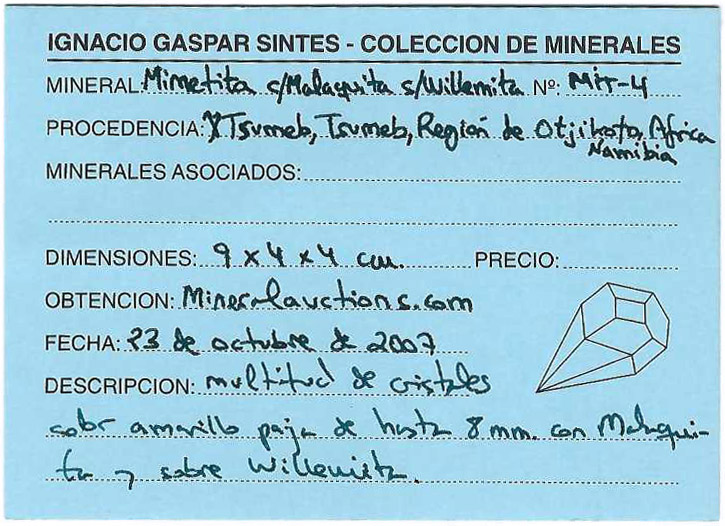 IGNACIO GASPAR SINTES - COLECCION DE MINERALES
MINERAL: Mimetita c/Malaquita s/Willemita Nº: MIT-4
PROCEDENCIA: Tsumeb, Tsumeb, Región de Otjikoto, África
Namibia
MINERALES ASOCIADOS:
DIMENSIONES: 9 x 4 x 4 cm. PRECIO:
OBTENCION: Mineralauctions.com
FECHA: 23 de octubre de 2007
DESCRIPCION: multitud de cristales
color amarillo paja de hasta 8 mm. con Malaqui-
ta y sobre Willemita.